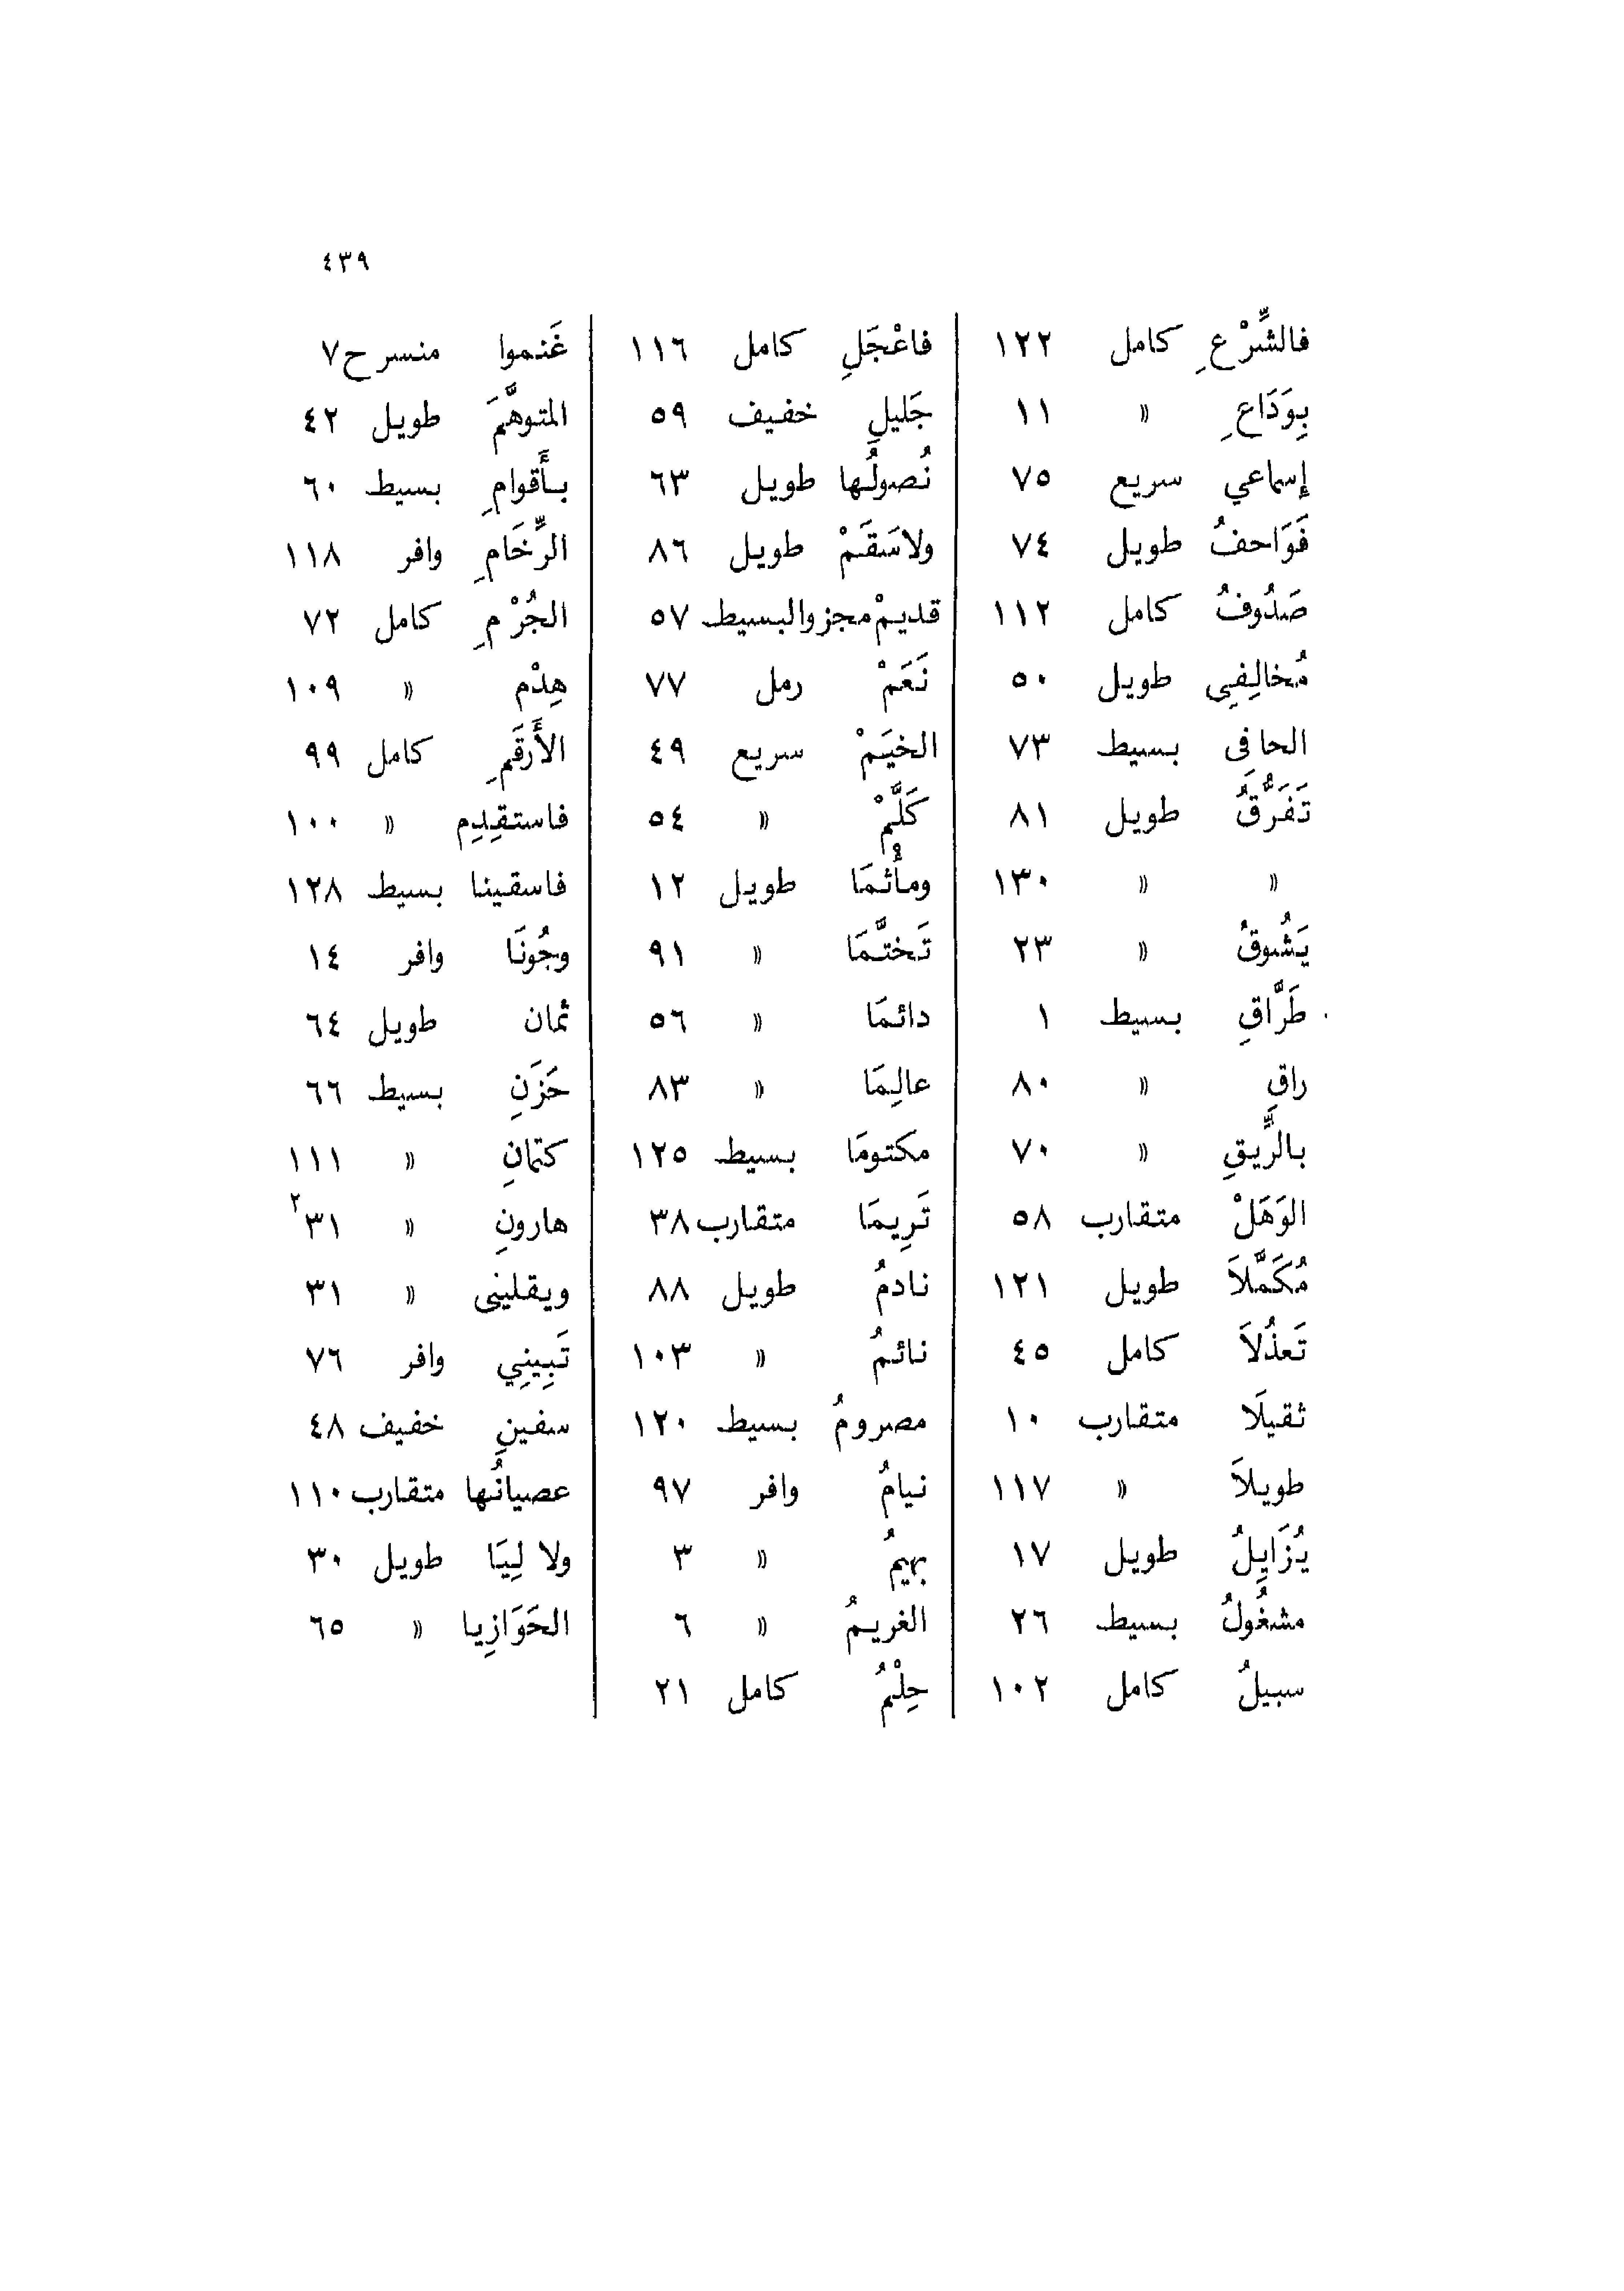 ٤٣٩
فالشِّرْعِ كامل ١٢٢
بِوَدَاعِ » ١١
إسماعي سريع ٧٥
فَوَاحفُ طويل ٧٤
صَدُوفُ كامل ١١٢
مُخالِفِي طويل ٥٠
الحافى بسيط ٧٣
تَفَرُّقُ طويل ٨١
» » ١٣٠
يَشُوقُ » ٢٣
طَرَّاقِ بسيط ١
راقِ » ٨٠
بالرِّيقِ » ٧٠
الوَهَلْ متقارب ٥٨
مُكَمَّلاَ طويل ١٢١
تَعذُلاَ كامل ٤٥
ثقيلَا متقارب ١٠
طويلاَ » ١١٧
يُزَايِلُ طويل ١٧
مشغُولُ بسيط ٢٦
سبيلُ كامل ١٠٢
فاعْجَلِ كامل ١١٦
جَليلِ خفيف ٥٩
نُصولُها طويل ٦٣
ولاسَقَمْ طويل ٨٦
قديمْ مجزوالبسيط ٥٧
نَعَمْ رمل ٧٧
الخيَمْ سريع ٤٩
كَلَّمْ » ٥٤
ومأْثُمَا طويل ١٢
تَختَّمَا » ٩١
دائمَا » ٥٦
عالِمَا » ٨٣
مكتومَا بسيط ١٢٥
تَرِيمَا متقارب ٣٨
نادمُ طويل ٨٨
نائمُ » ١٠٣
مصرومُ بسيط ١٢٠
نيامُ وافر ٩٧
بهيمُ » ٣
الغريمُ » ٦
حِلْمُ كامل ٢١
غَنموا منسرح ٧
المتوهَّمَ طويل ٤٢
بأَقوامِ بسيط ٦٠
الرِّخَامِ وافر ١١٨
الجُرْمِ كامل ٧٢
هِدْم » ١٠٩
الأَرقَمِ كامل ٩٩
فاستقِدِم » ١٠٠
فاسقينا بسيط ١٢٨
وجُونَا وافر ١٤
ثمان طويل ٦٤
حَزَنِ بسيط ٦٦
كتمانِ » ١١١
هارونِ » ٣١٢
ويقلينى » ٣١
تَبِينِي وافر ٧٦
سفينِ خفيف ٤٨
عصيانُها متقارب ١١٠
ولا لِيَا طويل ٣٠
الحَوَازِيا » ٦٥